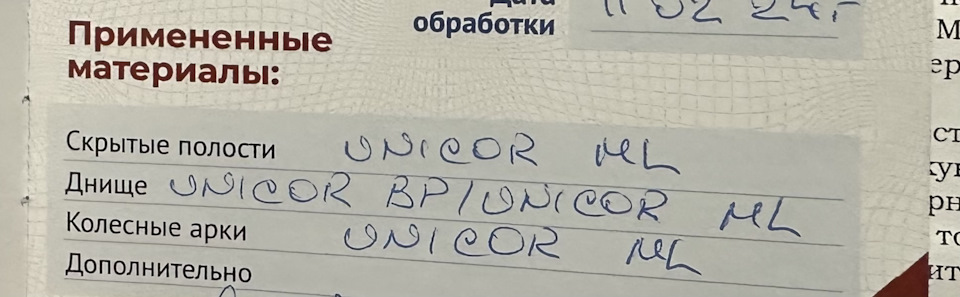 Дата
обработки 11 02 24г
Примененные
материалы:
Скрытые полости UNICOR ML
Днище UNICOR BP/UNICOR ML
Колесные арки UNICOR ML
Дополнительно